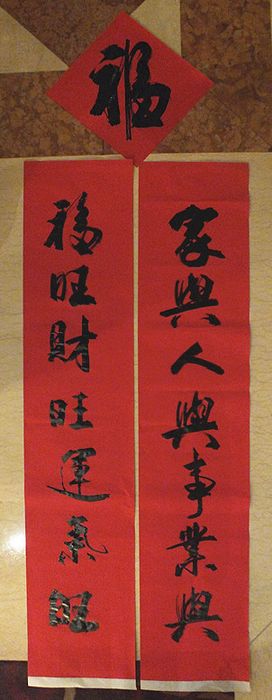 福
家興人興事業興
福旺財旺運氣旺